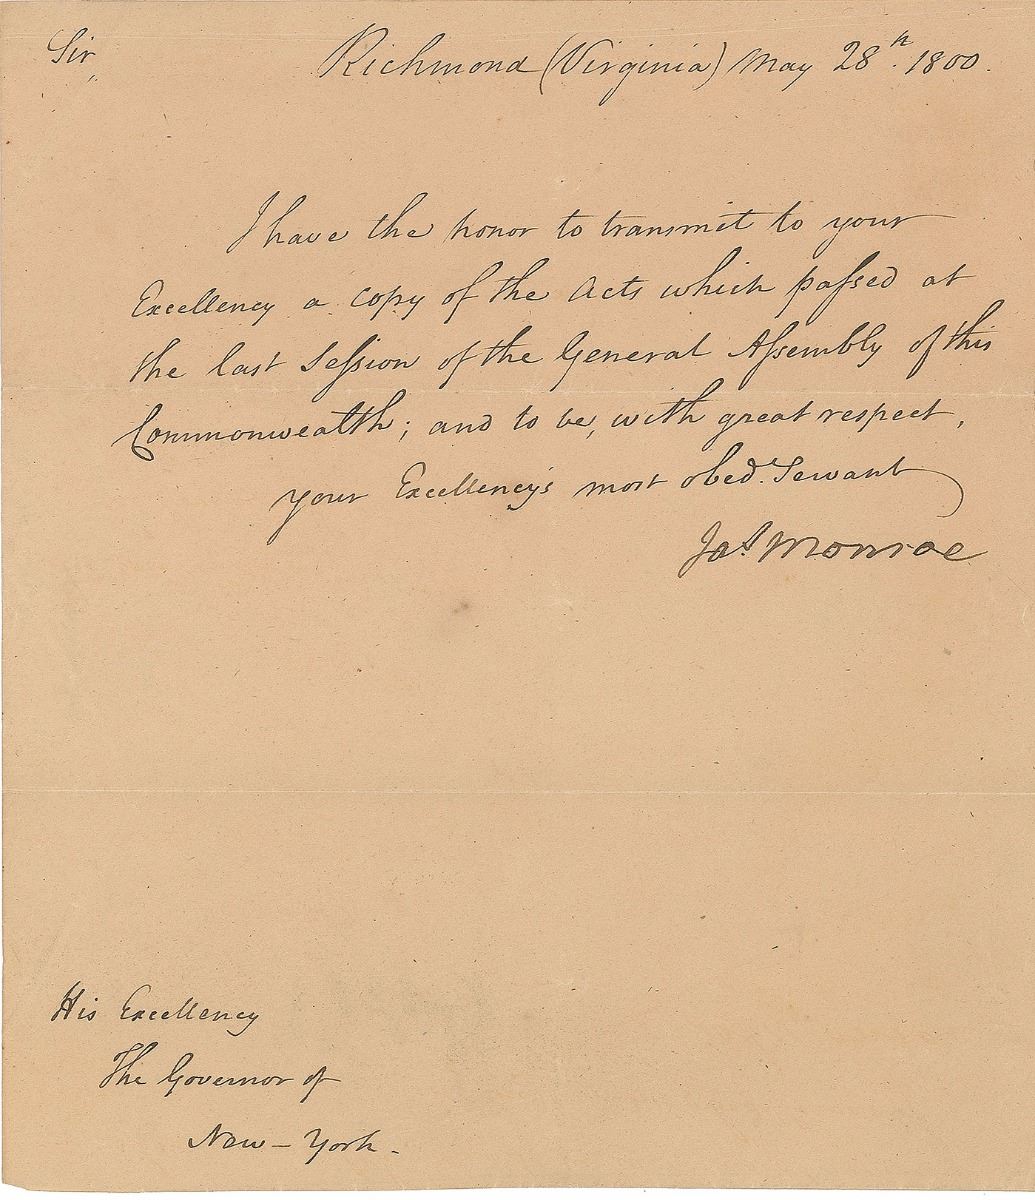 Sir,
Richmond (Virginia) May 28th. 1800.
I have the honor to transmit to your
Excellency a copy of the Acts which paſsed at
the last Seſsion of the General Aſsembly of this
Commonwealth; and to be, with great respect,
your Excellency's most obed. Servant
Jas. Monroe
His Excellency
The Governor of
New-York.